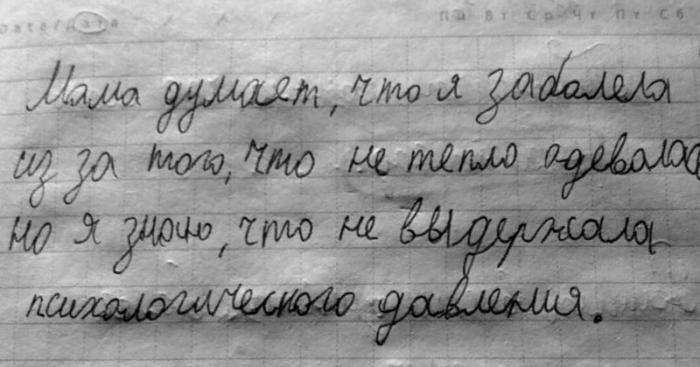 Date/Дата / / / Пн Вт Ср Чт Пт Сб
Мама думает, что я заболела
из за того, что не тепло одевалас
но я знаю, что не выдержала
психологического давления.